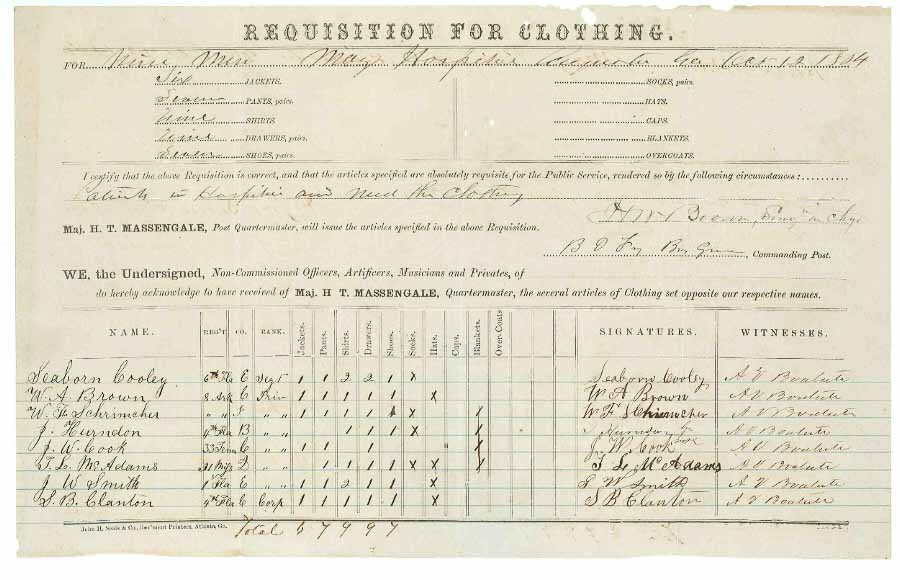 REQUISITION FOR CLOTHING.
FOR Nine Men May Hospital Augusta Ga Oct 12 1864
Six JACKETS. SOCKS, pairs.
Seven PANTS, pairs. HATS.
Nine SHIRTS CAPS.
Nine DRAWERS, pairs. BLANKETS.
Seven SHOES, pairs. OVERCOATS.
I certify that the above Requisition is correct, and that the articles specified are absolutely requisite for the Public Service, rendered so by the following circumstances:
Patients in Hospital and need the Clothing
Brown, Surg in Chge
Maj. H. T. MASSENGALE, Post Quartermaster, will issue the articles specified in the above Requisition.
B D Fry Brg Gen Commanding Post.
WE, the Undersigned, Non-Commissioned Officers, Artificers, Musicians and Privates, of
do hereby acknowledge to have received of Maj. H T. MASSENGALE, Quartermaster, the several articles of Clothing set opposite our respective names.
NAME. REG'T CO. RANK. Jackets. Pants. Shirts. Drawers. Shoes. Socks. Hats. Caps. Blankets. Over-Coats SIGNATURES. WITNESSES.
Seaborn Cooley 6th Fla E Segt 1 1 2 2 1 x Seaborn Cooley A V Boatrite
W. A. Brown 8 Ark C Priv 1 1 1 1 1 x W A Brown A V Boatrite
W. F. Schrimcher " " " " 1 1 1 1 1 x W F Schrimcher A V Boatrite
J. Hurndon 4th Fla B " " 1 1 1 x J Hurndon A V Boatrite
J. W. Cook 33 Tenn C " " 1 1 J W Cook A V Boatrite
T. L. McAdams 31 Miss " " 1 1 1 1 x x T L McAdams A V Boatrite
J W Smith 1 Fla E " " 1 1 2 1 1 x J W Smith A V Boatrite
S. B. Clanton 4th Fla C Corp 1 1 1 1 1 x S B Clanton A V Boatrite
John H. Seals & Co., Gov'ment Printers, Atlanta, Ga. Total 6 7 9 9 7